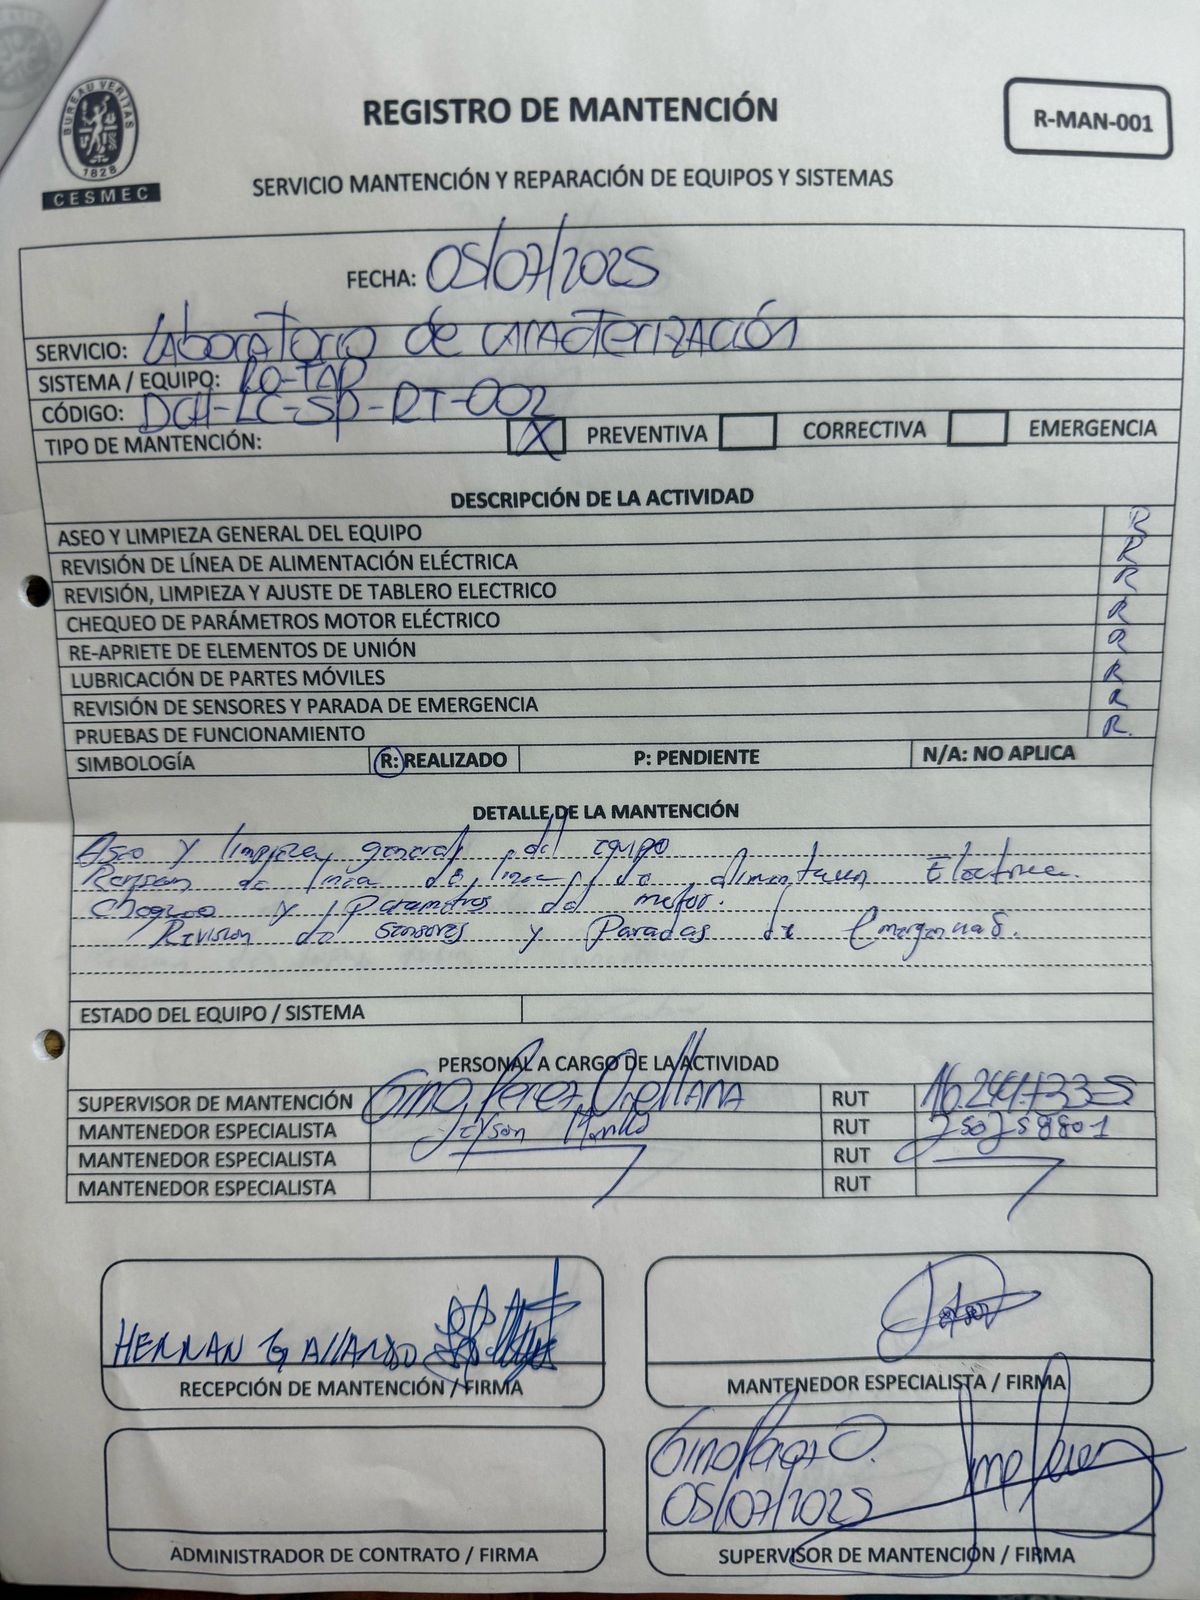 BUREAU VERITAS
1828
CESMEC
REGISTRO DE MANTENCIÓN
R-MAN-001
SERVICIO MANTENCIÓN Y REPARACIÓN DE EQUIPOS Y SISTEMAS
FECHA: 05/07/2025
SERVICIO: Laboratorio de caracterización
SISTEMA / EQUIPO: RO-TAP
CÓDIGO: DCH-LC-SP-RT-002
TIPO DE MANTENCIÓN: X PREVENTIVA CORRECTIVA EMERGENCIA
DESCRIPCIÓN DE LA ACTIVIDAD
ASEO Y LIMPIEZA GENERAL DEL EQUIPO R
REVISIÓN DE LÍNEA DE ALIMENTACIÓN ELÉCTRICA R
REVISIÓN, LIMPIEZA Y AJUSTE DE TABLERO ELECTRICO R
CHEQUEO DE PARÁMETROS MOTOR ELÉCTRICO R
RE-APRIETE DE ELEMENTOS DE UNIÓN R
LUBRICACIÓN DE PARTES MÓVILES R
REVISIÓN DE SENSORES Y PARADA DE EMERGENCIA R
PRUEBAS DE FUNCIONAMIENTO R.
SIMBOLOGÍA R: REALIZADO P: PENDIENTE N/A: NO APLICA
DETALLE DE LA MANTENCIÓN
Aseo y limpieza general del equipo
Revision de linea de linea de alimentacion Electrica.
Chequeo y Parametros del motor.
Revision de sensores y Paradas de Emergencias.
ESTADO DEL EQUIPO / SISTEMA
PERSONAL A CARGO DE LA ACTIVIDAD
SUPERVISOR DE MANTENCIÓN Gino Perez Orellana RUT 16.244.733-5
MANTENEDOR ESPECIALISTA Jeyson RUT
MANTENEDOR ESPECIALISTA RUT
MANTENEDOR ESPECIALISTA RUT
HERNAN GALLARDO
RECEPCIÓN DE MANTENCIÓN / FIRMA
MANTENEDOR ESPECIALISTA / FIRMA
Gino Perez O.
05/07/2025
ADMINISTRADOR DE CONTRATO / FIRMA
SUPERVISOR DE MANTENCIÓN / FIRMA